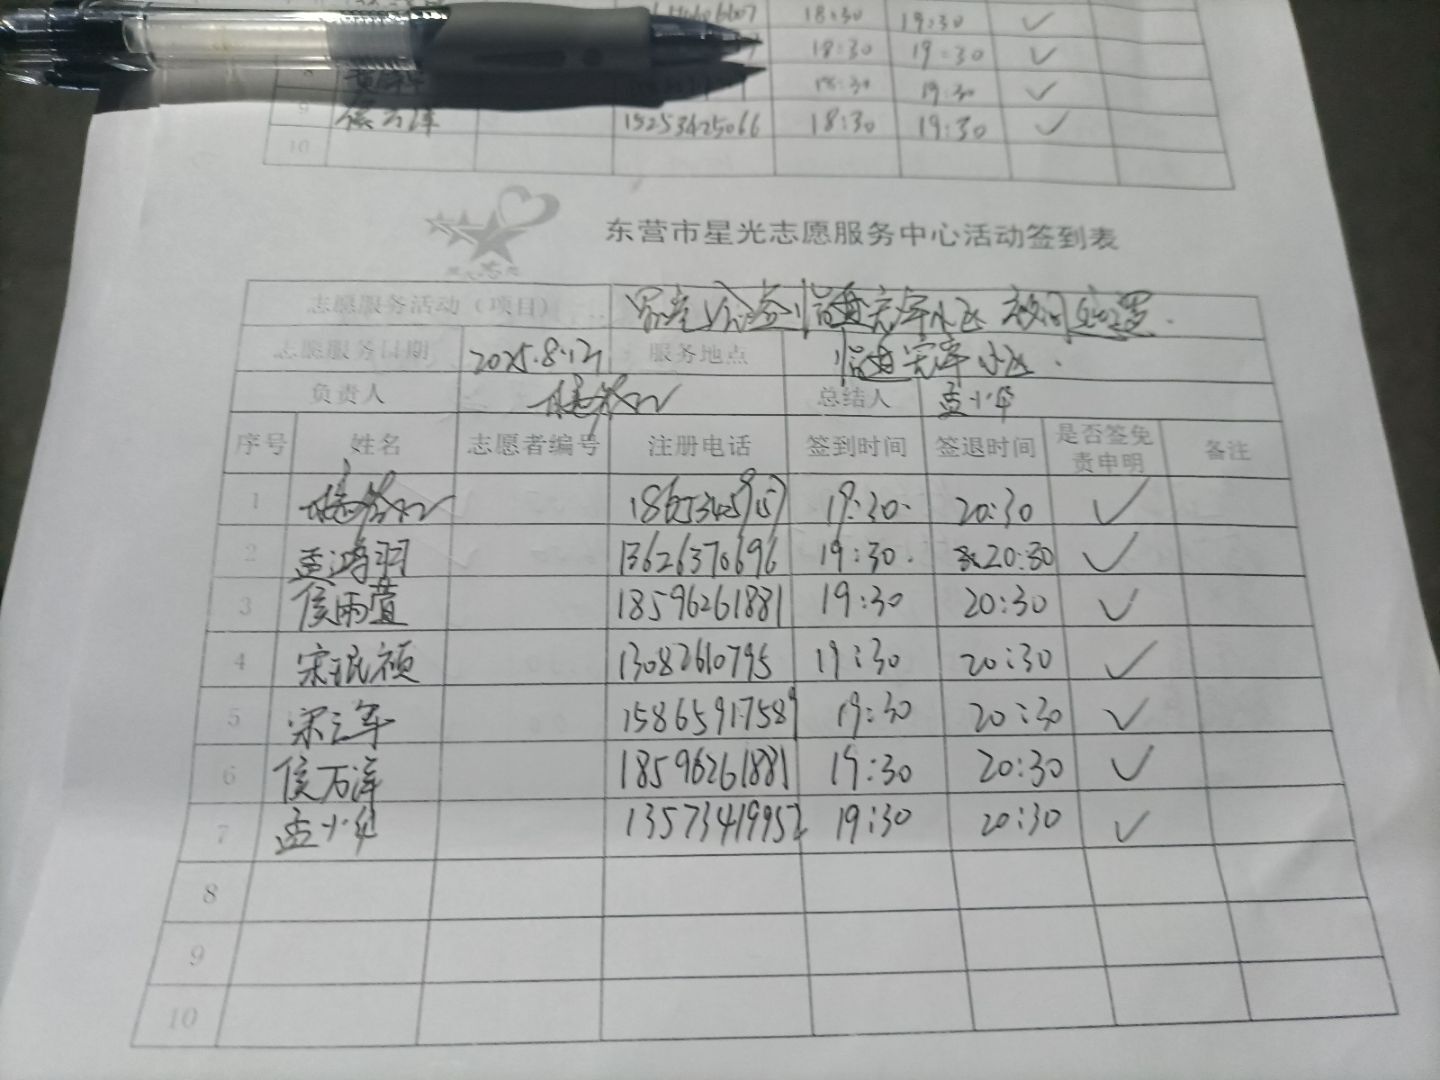 18:30 19:30 ✓
18:30 19:30 ✓
8 18:30 19:30 ✓
9 侯万泽 15253425066 18:30 19:30 ✓
10
东营市星光志愿服务中心活动签到表
志愿服务活动（项目）
志愿服务日期 2025.8.12 服务地点 小区.
负责人 总结人 孟小华
序号 姓名 志愿者编号 注册电话 签到时间 签退时间 是否签免责申明 备注
1 19:30. 20:30 ✓
2 孟鸿羽 13626370696 19:30. 20:30 ✓
3 侯雨萱 18596261881 19:30 20:30 ✓
4 宋珉祯 13082610795 19:30 20:30 ✓
5 宋三军 15865917589 19:30 20:30 ✓
6 侯万泽 18596261881 19:30 20:30 ✓
7 孟小华 13573419952 19:30 20:30 ✓
8
9
10